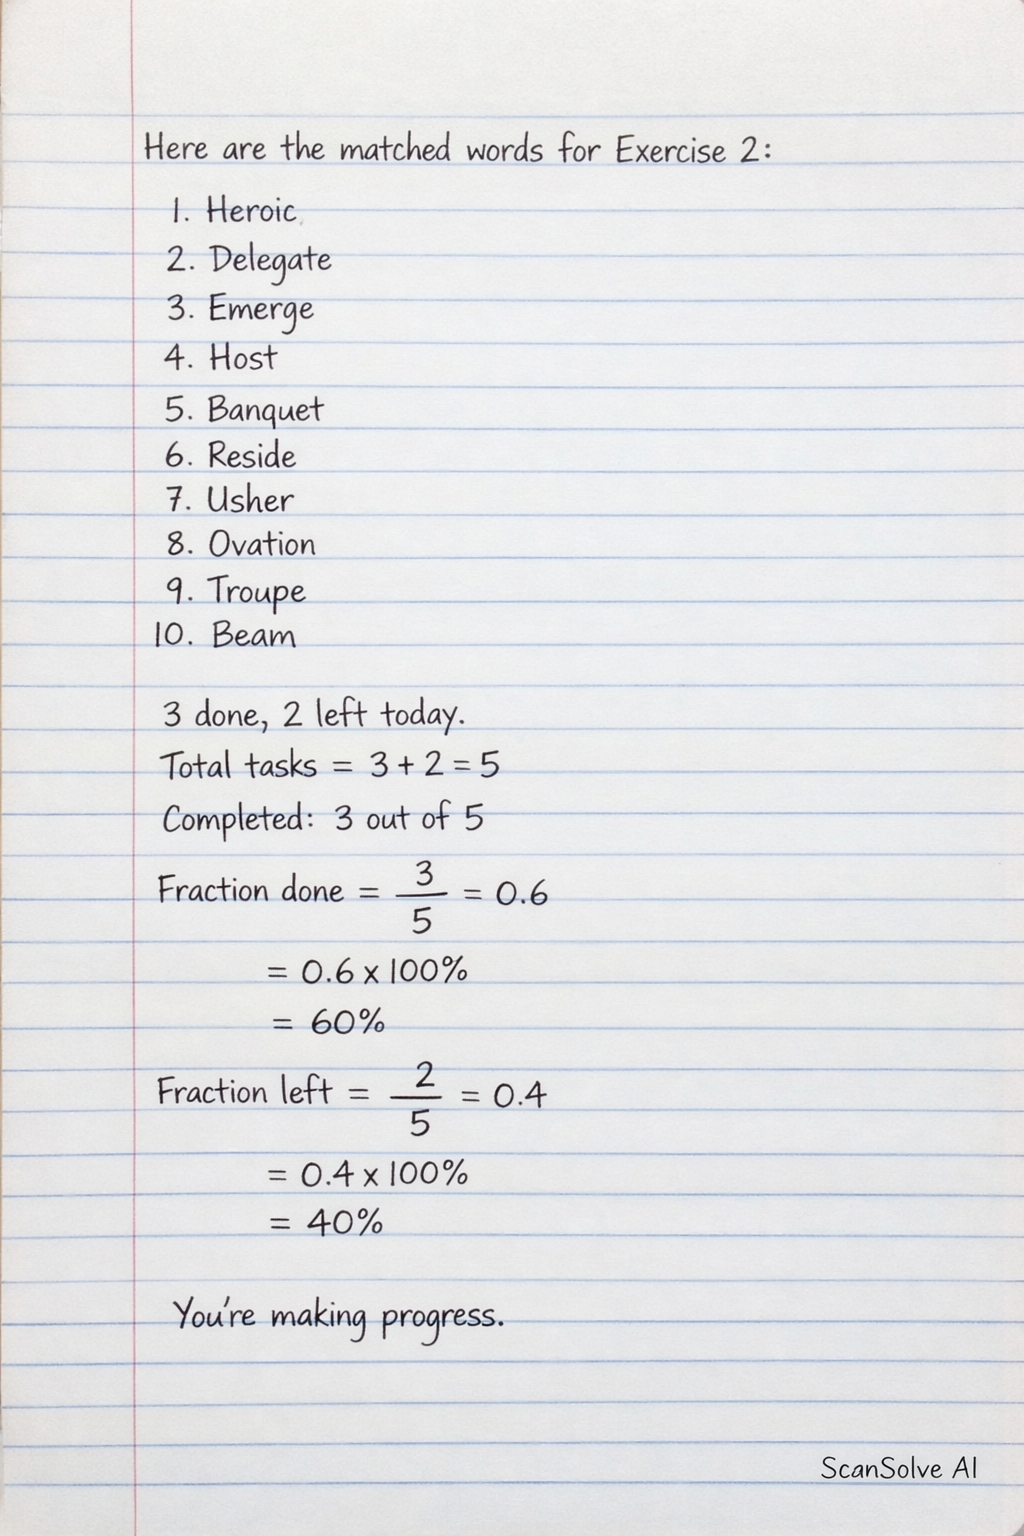 Here are the matched words for Exercise 2:
1. Heroic
2. Delegate
3. Emerge
4. Host
5. Banquet
6. Reside
7. Usher
8. Ovation
9. Troupe
10. Beam
3 done, 2 left today.
Total tasks = 3 + 2 = 5
Completed: 3 out of 5
Fraction done = 3/5 = 0.6
= 0.6 x 100%
= 60%
Fraction left = 2/5 = 0.4
= 0.4 x 100%
= 40%
You're making progress.
ScanSolve AI